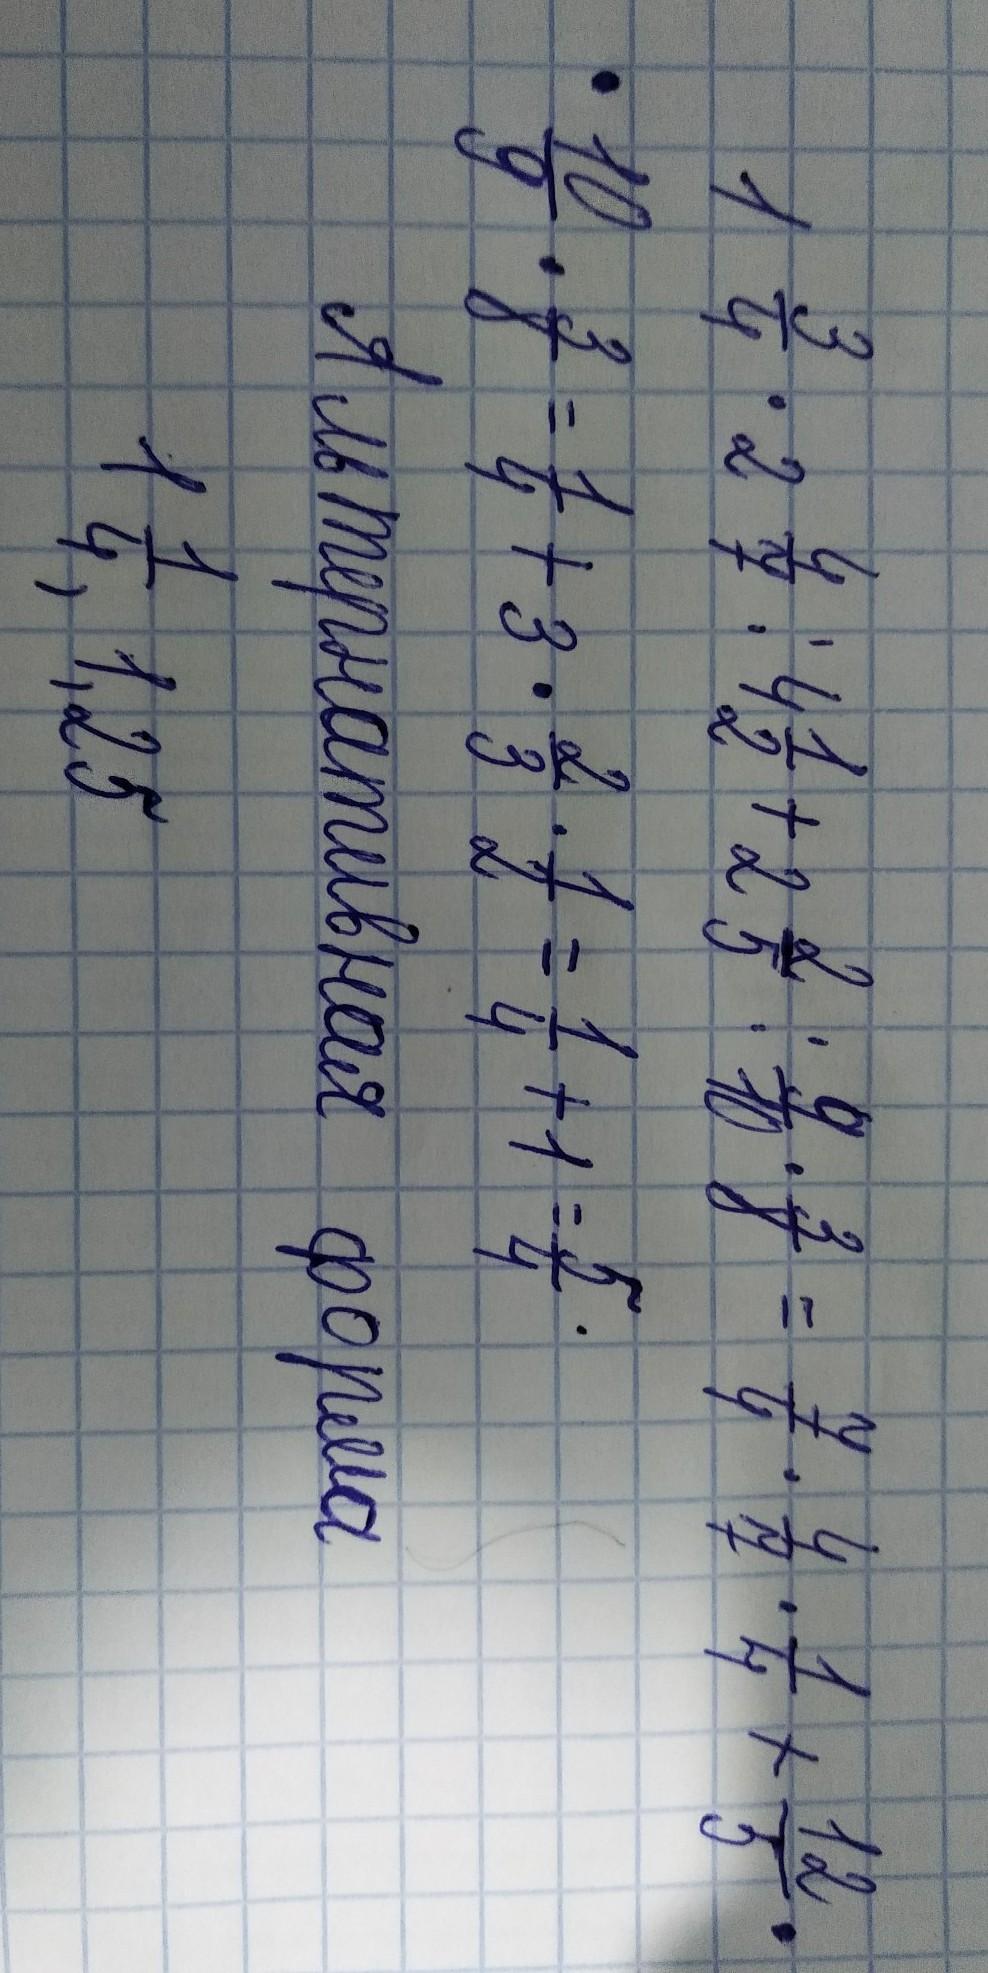 1 3/4 · 2 4/7 : 4 1/2 + 2 2/5 : 9/10 · 3/8 = 7/4 · 4/7 · 1/4 + 12/5 ·
· 10/9 · 3/8 = 1/4 + 3 · 2/3 · 1/2 = 1/4 + 1 = 5/4 .
Альтернативная форма
1 1/4, 1,25